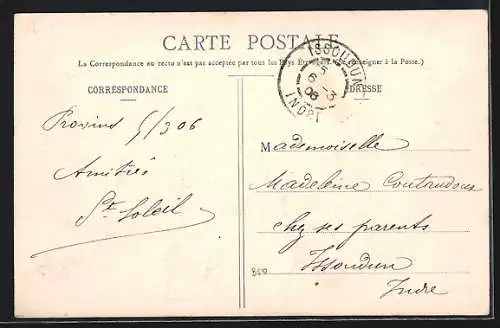 CARTE POSTALE
La Correspondance au recto n'est pas acceptée par tous les Pays Etrangers (Se renseigner à la Poste.)
CORRESPONDANCE
ADRESSE
ISSOUDUN
5 -3
6
06
INDRE
Provins 5/3 06
Amitiés
St Soleil
Mademoiselle
Madeleine
chez ses parents
Issoudun
Indre